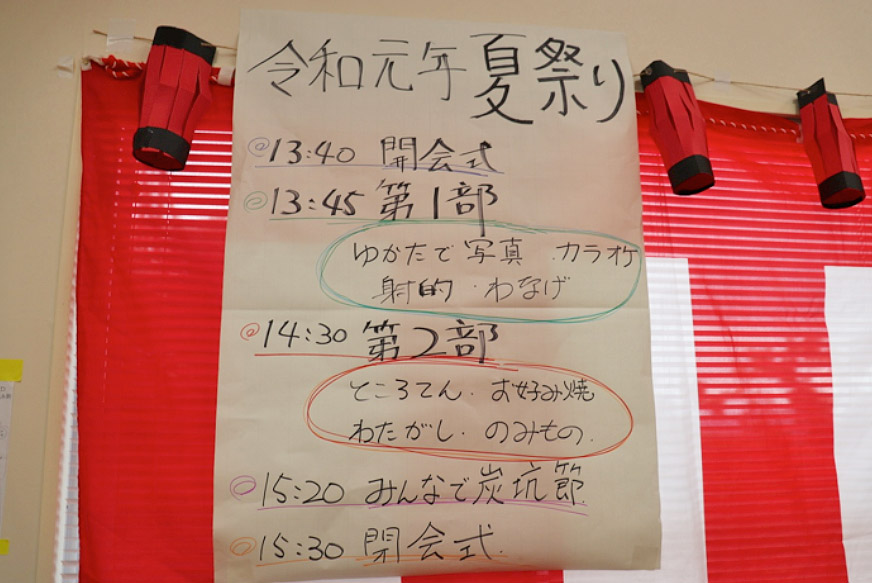 令和元年 夏祭り
◎13:40 開会式
◎13:45 第1部
ゆかたで写真 . カラオケ
射的 . わなげ
◎14:30 第2部
ところてん. お好み焼
わたがし. のみもの.
◎15:20 みんなで炭坑節
◎15:30 閉会式.